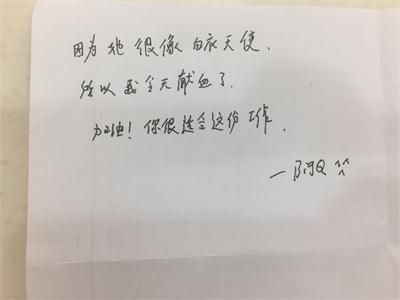 因为她很像白衣天使,
所以我今天献血了.
加油! 你很适合这份工作.
—阿Q